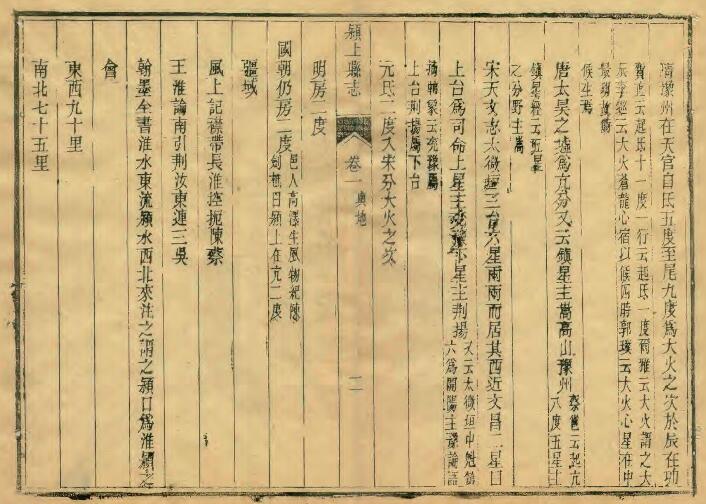 濱州在天官自氐五度至尾九度爲大火之次於辰在
費直云起氐十一度一行云起氐一度爾雅云大火謂之大
辰李經云大火蒼龍心宿以候四時郭璞云大火心星在中
最明故時
候主焉
唐太昊之墟爲亢分又云鎮星主嵩高山豫州
蔡邕云起亢
八度五星主
鎮星經云
之分野主嵩
宋天文志太微垣三台六星兩兩而居其西近文昌二星曰
上台爲司命上星主兗豫下星主荆揚
又云太微垣中魁
六爲開陽主豫
云兗豫屬
上台荆揚屬下台
元氐二度入宋分大火之次
潁上縣志
卷一
輿地
二
明房二度
國朝仍房二度
邑人高澤生風物紀
日潁上在亢二度
疆域
風土記襟帶長淮控扼陳蔡
王淮論南引荆汝東連三吳
翰墨全書淮水東流潁水西北來注之謂之潁口爲淮潁之
會
東西九十里
南北七十五里